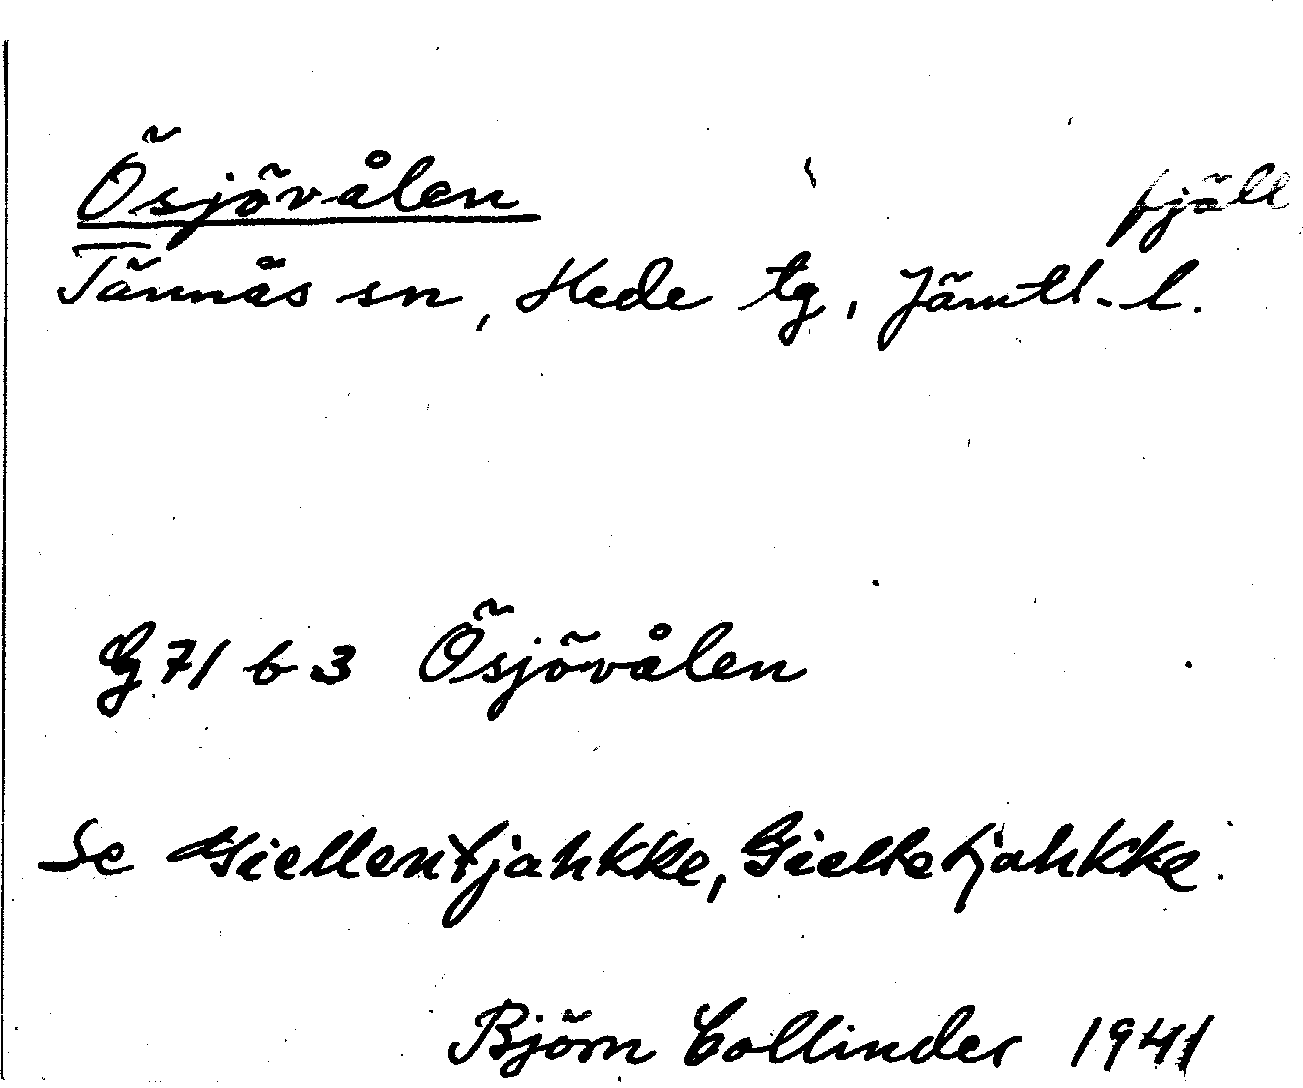 Ösjövålen fjäll
Tännäs sn, Hede tg, Jämtl. l.
G 71 b 3 Ösjövålen
Se Giellentjahkke, Gielketjahkke.
Björn Collinder 1941